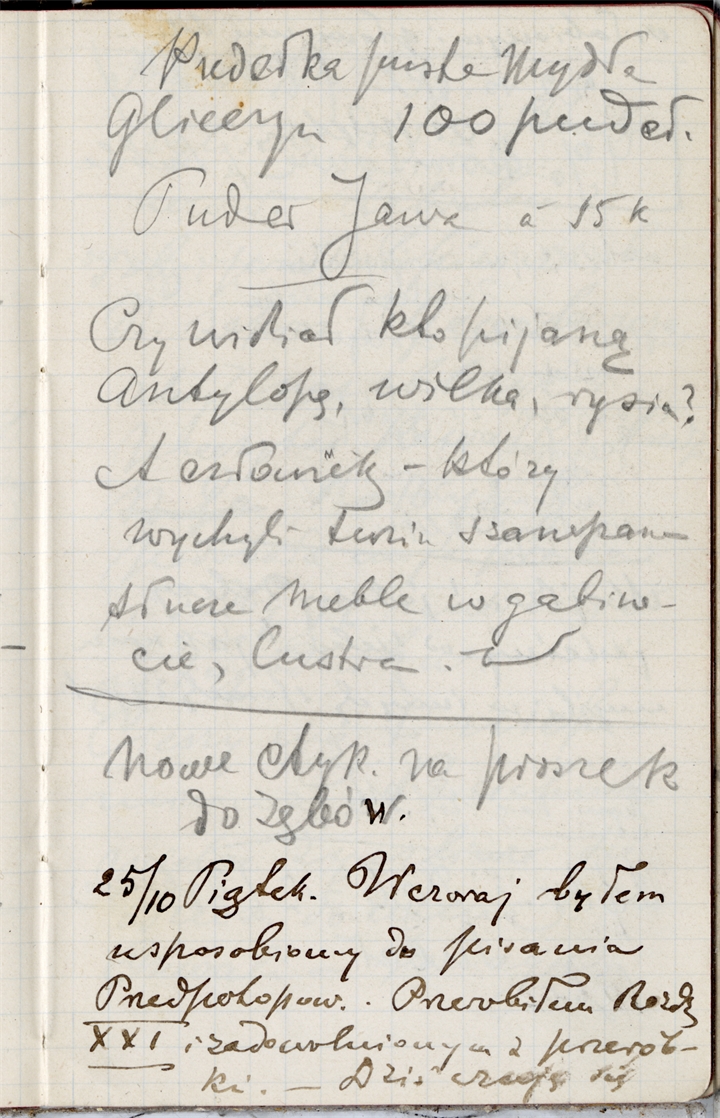 Pudełka puste Mydła
Gliceryn 100 pudeł.
Puder Jawa à 15 k
Czy widział kto pijaną
Antylopę, wilka, rysia?
A człowiek – który
wychyli szampana
tłucze meble w gabine-
cie, lustra.
Nowe etyk. na proszek
do zębów.
25/10 Piątek. Wczoraj byłem
usposobiony do pisania
Przedpotopow. . Przerobiłem Rozdz
XXI i zadowolnionym z przerób-
ki. — Dziś czuję się